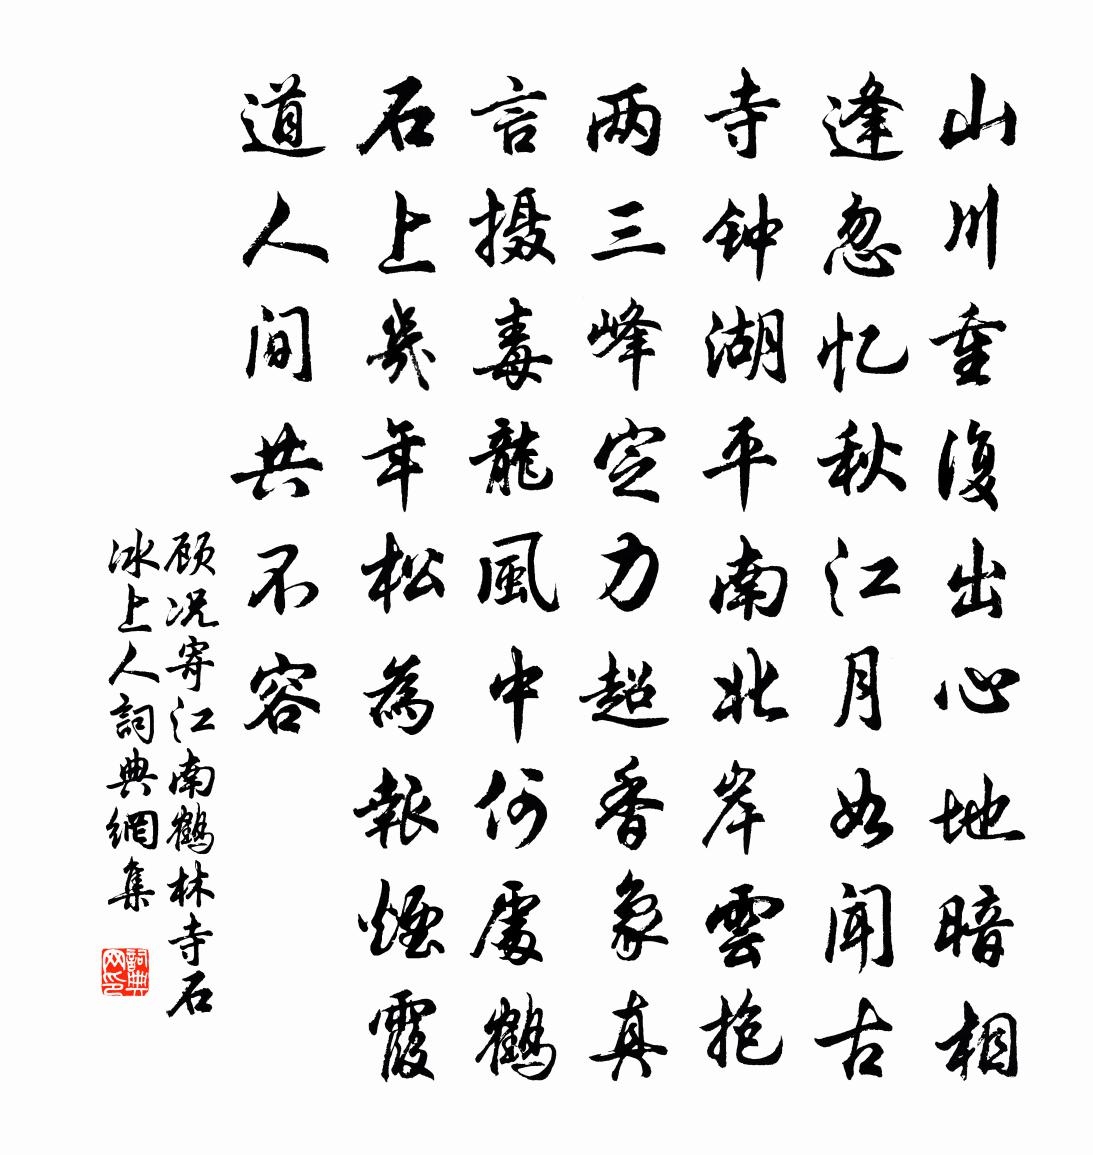 山川重復出心地暗相
逢忽忆秋江月如闻古
寺钟湖平南北岸雲抱
两三峰定力超香象真
言摄毒龍風中何處鹤
石上幾年松為報煙霞
道人间共不容
顾况寄江南鹤林寺石
冰上人詞典網集
詞典网印